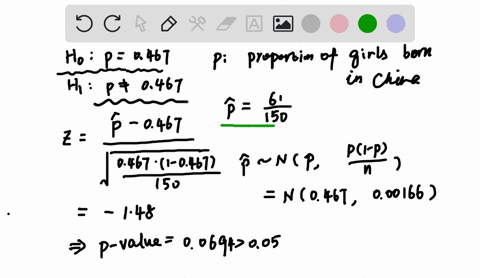 H₀: p = 0.467
p: proportion of girls born in China
H₁: p ≠ 0.467
p̂ = 61/150
Z = (p̂ - 0.467) / √(0.467·(1-0.467)/150)
p̂ ~ N(p, p(1-p)/n)
= N(0.467, 0.00166)
= -1.48
⇒ p-value = 0.0694 > 0.05